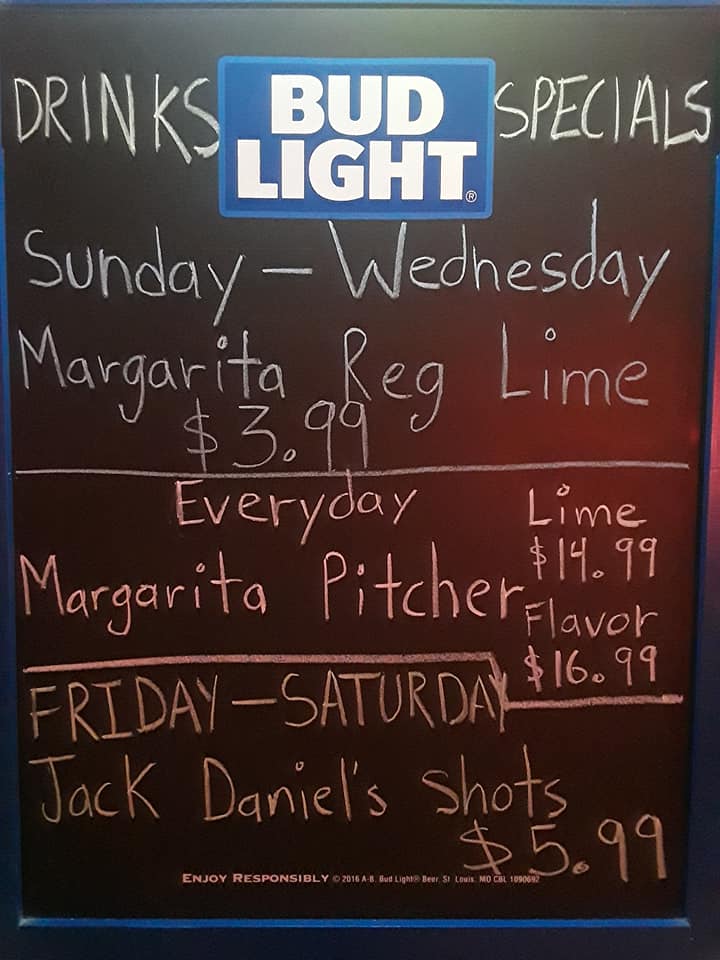 DRINKS BUD LIGHT® SPECIALS
Sunday - Wednesday
Margarita Reg Lime
$3.99
Everyday
Margarita Pitcher
Lime
$14.99
Flavor
$16.99
FRIDAY - SATURDAY
Jack Daniel's shots
$5.99
ENJOY RESPONSIBLY © 2016 A-B, Bud Light® Beer, St. Louis, MO CBL 1090692